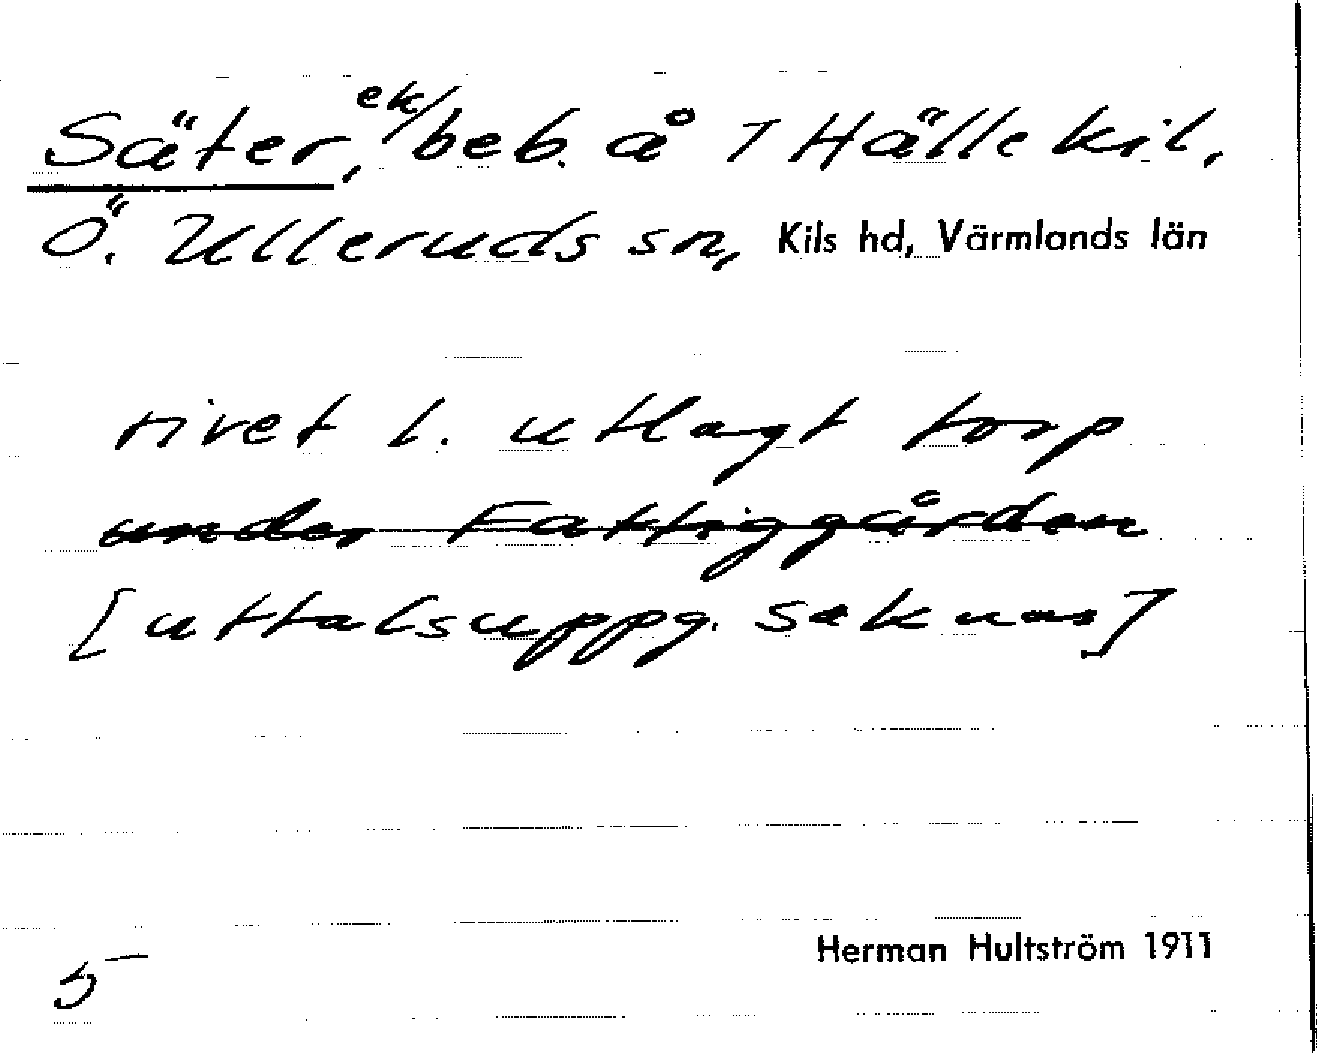 Säter, ek/beb. å 1 Hällekil,
Ö. Ulleruds sn, Kils hd, Värmlands län
rivet l. utlagt torp
under Fattiggården
[uttalsuppg. saknas]
Herman Hultström 1911
5